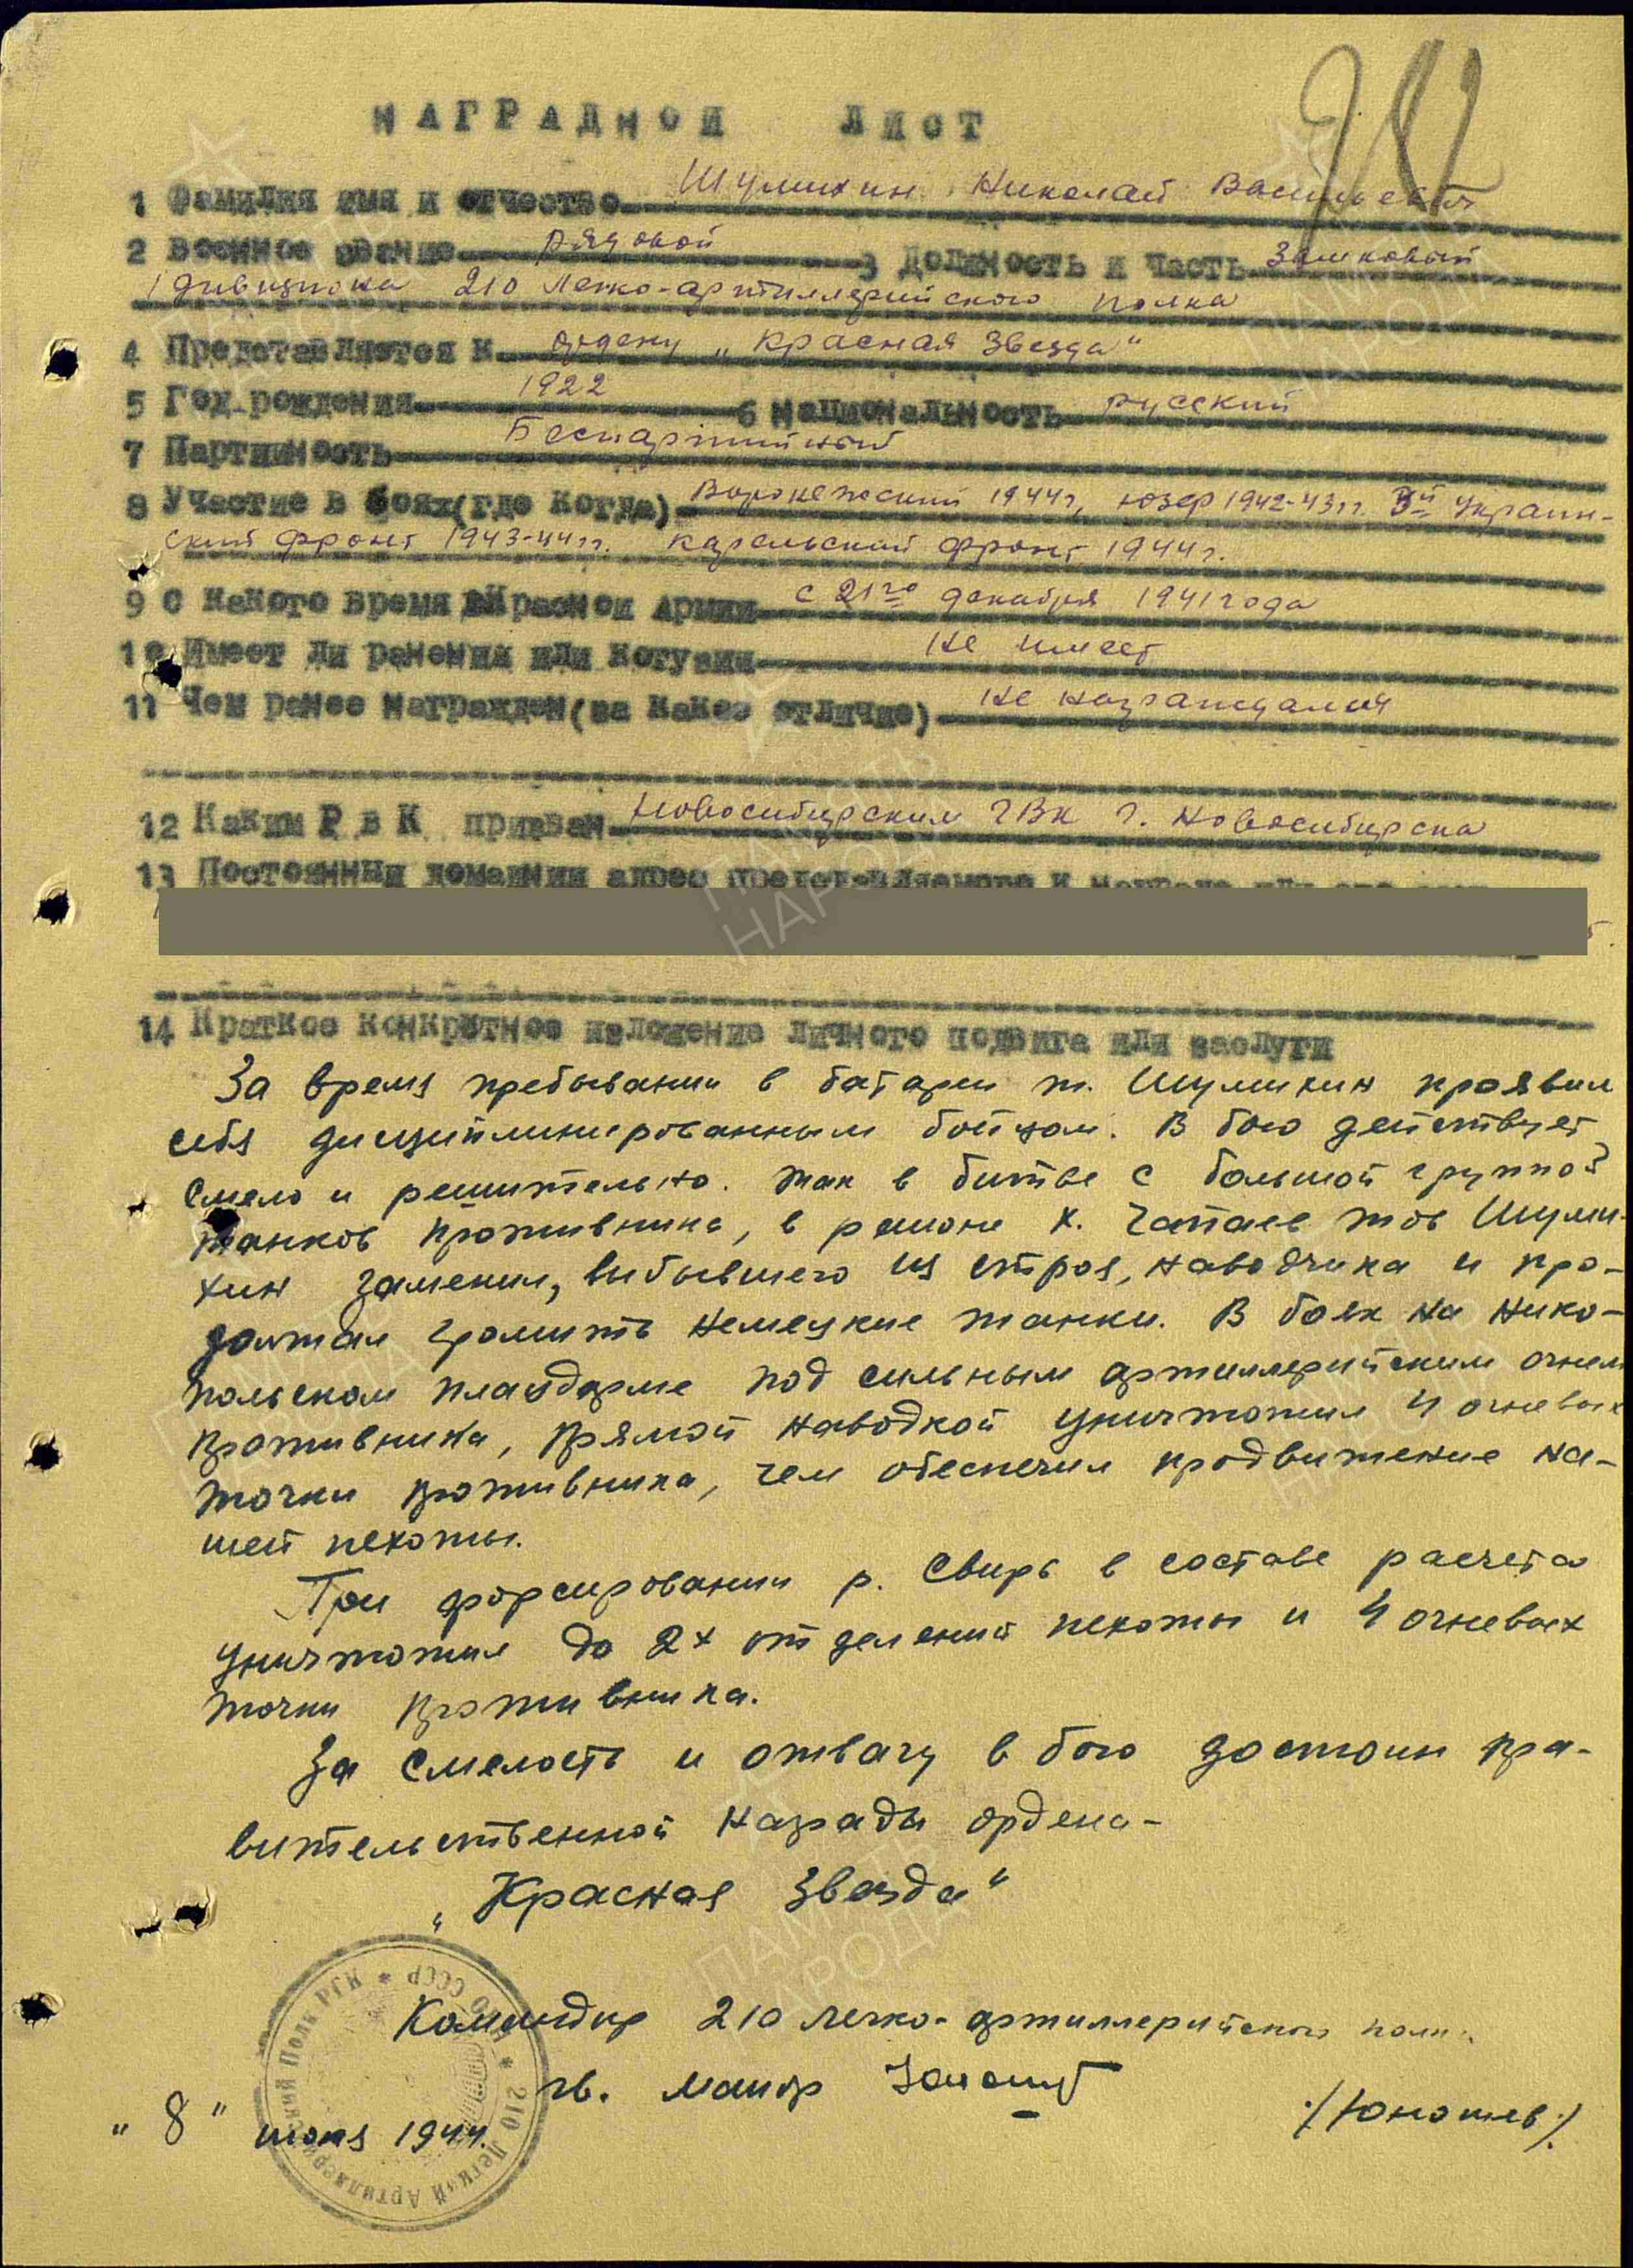 НАГРАДНОЙ ЛИСТ
1 Фамилия имя и отчество Шумихин Николай Васильевич
2 Военное звание рядовой 3 Должность и часть Замковый
1 дивизиона 210 Легко-артиллерийского полка
4 Представляется к ордену „Красная Звезда"
5 Год рождения 1922 6 национальность русский
7 Партийность Беспартийный
8 Участие в боях(где когда) Воронежский 1944г, югзф 1942-43гг. 3й Украин-
ский фронт 1943-44гг. Карельский фронт 1944г.
9 С какого время в Красной Армии с 21го декабря 1941 года
10 Имеет ли ранения или контузии Не имеет
11 Чем ранее награжден(за какое отличие) Не награждался
12 Каким Р В К призван Новосибирским ГВК г. Новосибирска
13 Постоянный домашний адрес представляемого к
14 Краткое конкретное изложение личного подвига или заслуги
За время пребывании в батареи т. Шумихин проявил
себя дисциплинированным бойцом. В бою действует
смело и решительно. Так в битве с большой группой
танков противника, в районе х. Чапаев тов Шуми-
хин заменил, выбывшего из строя, наводчика и про-
должал громить немецкие танки. В боях на Нико-
польском плацдарме под сильным артиллерийским огнем
противника, прямой наводкой уничтожил 4 огневых
точки противника, чем обеспечил продвижение на-
шей пехоты.
При форсировании р. Свирь в составе расчета
уничтожил до 2х отделений пехоты и 4 огневых
точки противника.
За смелость и отвагу в бою достоин пра-
вительственной награды ордена-
„Красная Звезда"
Командир 210 легко-артиллерийского полка
гв. майор /Юношев/
„8" июля 1944.
210 Легкий Артиллерийский Полк РГК * НКО СССР *
ПАМЯТЬ НАРОДА